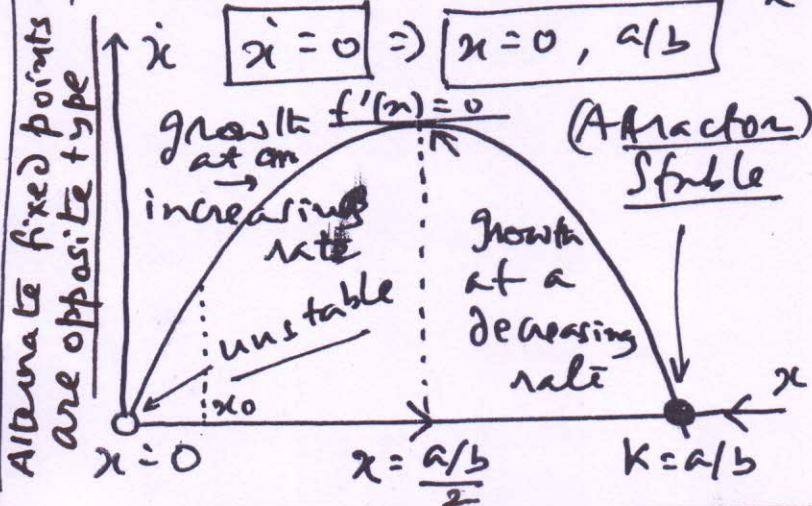 Alternate fixed points
are opposite type
ẋ
ẋ = 0 ⇒ x = 0, a/b
growth
at an
increasing
rate
f'(x) = 0
(Attractor)
Stable
growth
at a
decreasing
rate
unstable
x₀
x
x = 0
x = a/b
2
K = a/b